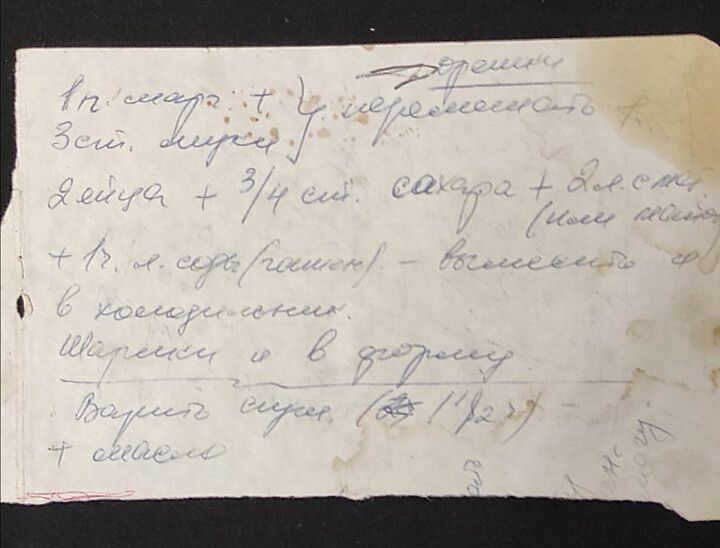 орешки
1 п. марг. + } перемешать
3 ст. муки
2 яйца + 3/4 ст. сахара + 2 л. смет.
(или майон
+ 1 ч. л. соды (гашен) – вымесить и
в холодильник.
Шарики и в форму
Варить сгущ. (1 1/2 ч)
+ масло